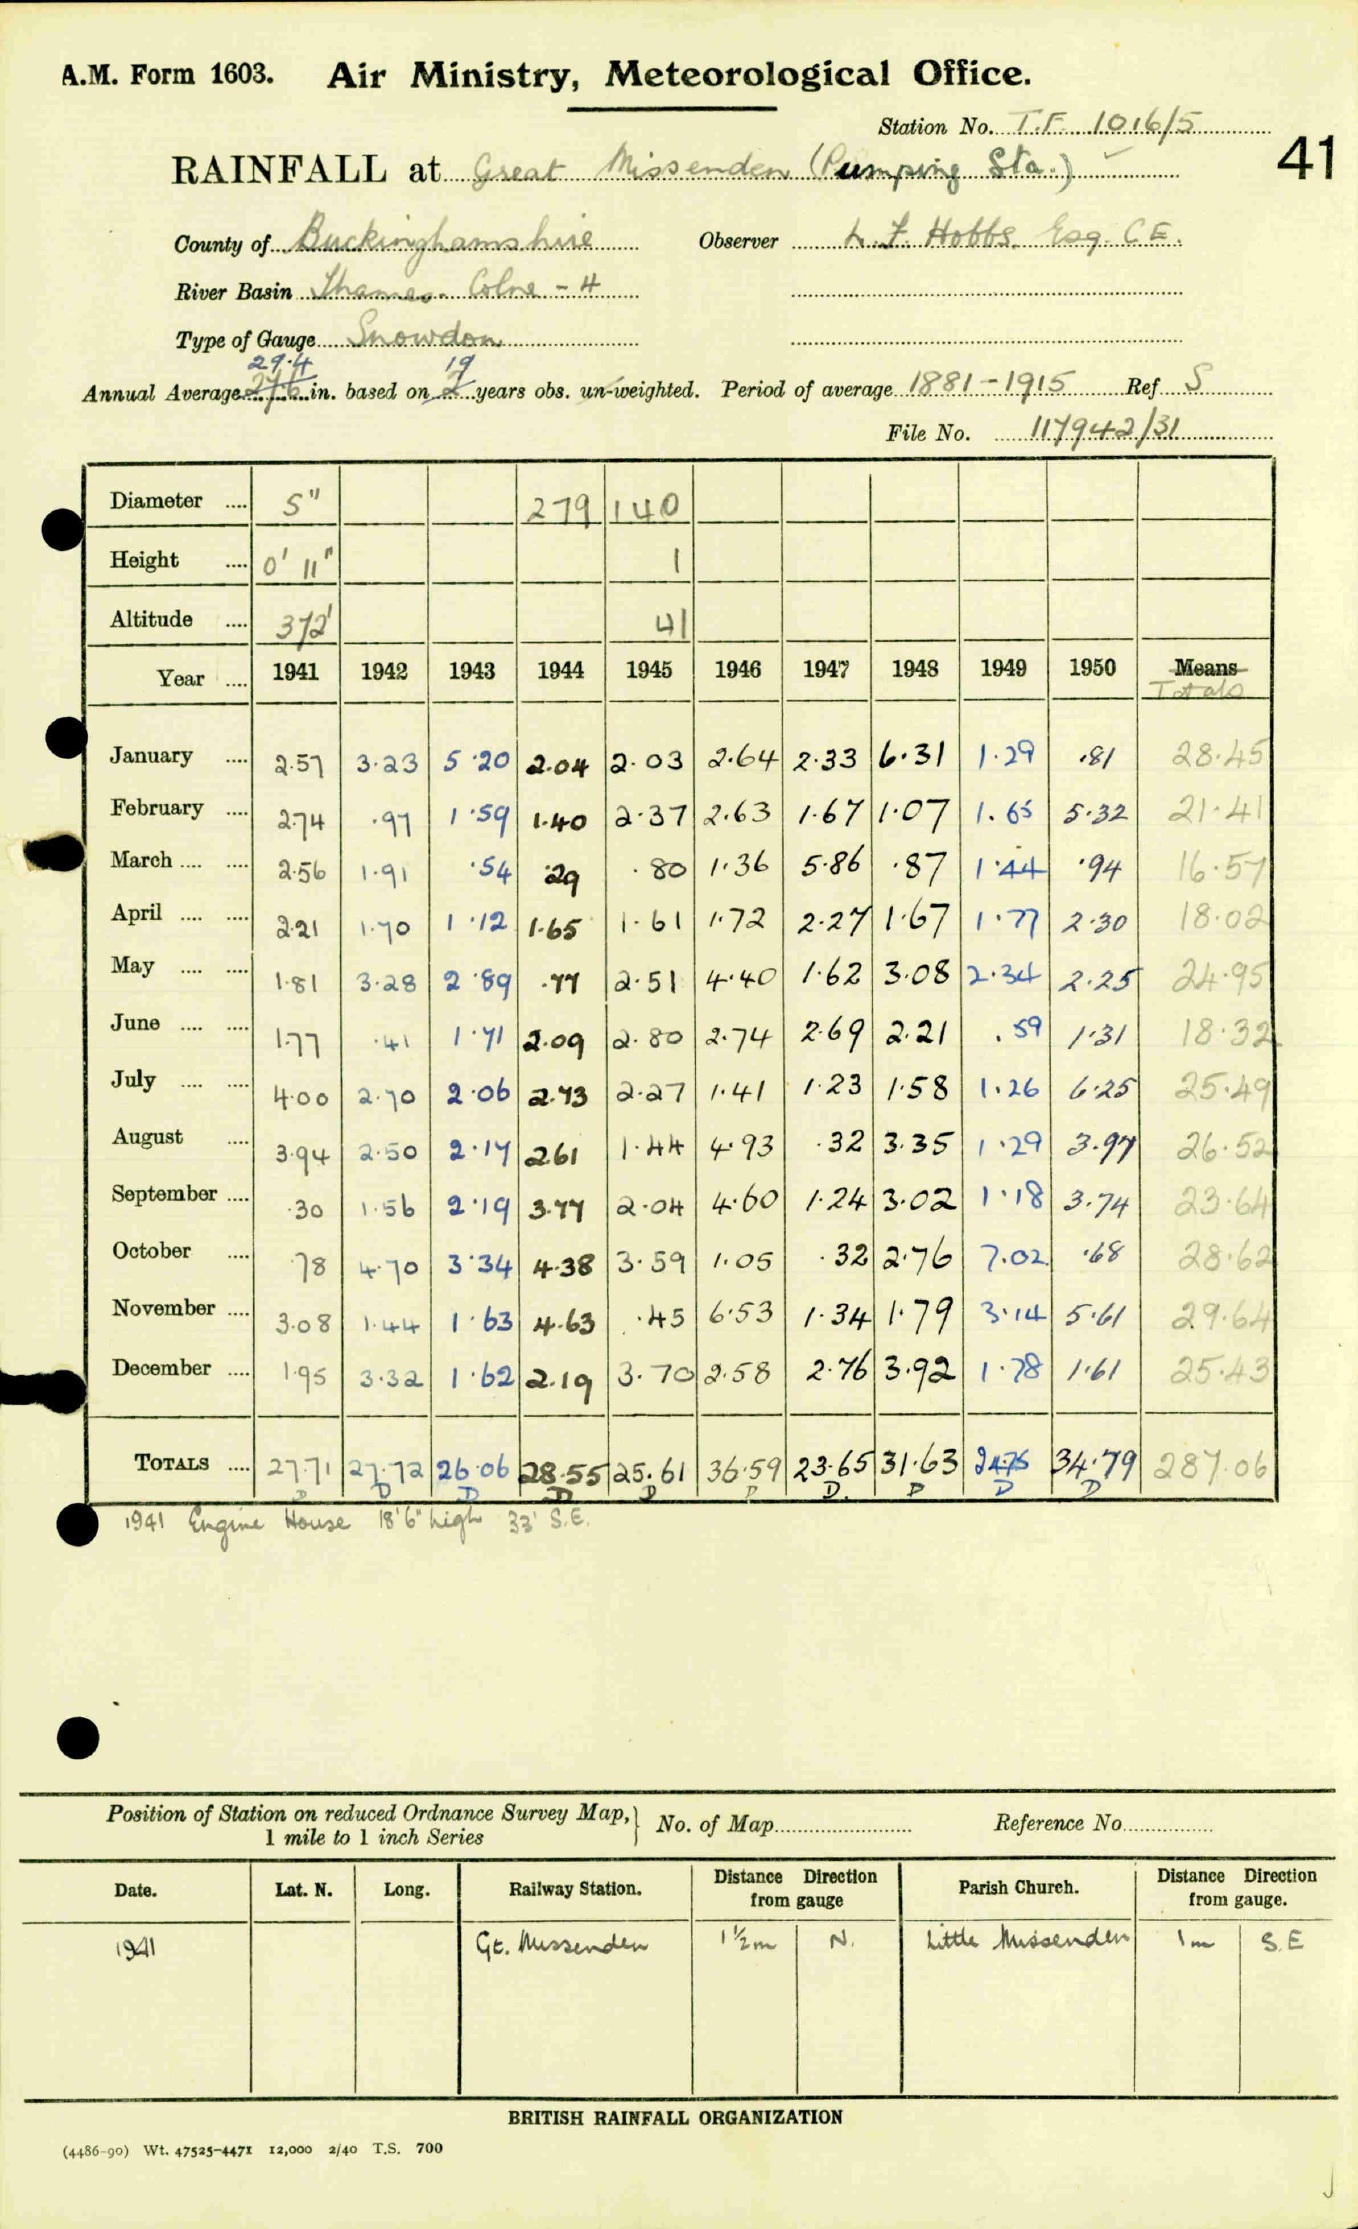 A.M. Form 1603. Air Ministry, Meteorological Office.
Station No. T.F. 1016/5
41
RAINFALL at Great Missenden (Pumping Sta.)
County of Buckinghamshire Observer L. F. Hobbs Esq. C.E.
River Basin Thames. Colne - 4
Type of Gauge Snowdon
29.4 19
Annual Average in. based on 2 years obs. un-weighted. Period of average 1881-1915 Ref S
File No. 117942/31
Diameter .... 5" 279 140
Height .... 0' 11" 1
Altitude .... 372' 41
Year .... 1941 1942 1943 1944 1945 1946 1947 1948 1949 1950 Means
Totals
January .... 2.57 3.23 5.20 2.04 2.03 2.64 2.33 6.31 1.29 .81 28.45
February .... 2.74 .97 1.59 1.40 2.37 2.63 1.67 1.07 1.65 5.32 21.41
March .... .... 2.56 1.91 .54 .29 .80 1.36 5.86 .87 1.44 .94 16.57
April .... .... 2.21 1.70 1.12 1.65 1.61 1.72 2.27 1.67 1.77 2.30 18.02
May .... .... 1.81 3.28 2.89 .77 2.51 4.40 1.62 3.08 2.34 2.25 24.95
June .... .... 1.77 .41 1.71 2.09 2.80 2.74 2.69 2.21 .59 1.31 18.32
July .... .... 4.00 2.70 2.06 2.73 2.27 1.41 1.23 1.58 1.26 6.25 25.49
August .... 3.94 2.50 2.17 2.61 1.44 4.93 .32 3.35 1.29 3.97 26.52
September .... .30 1.56 2.19 3.77 2.04 4.60 1.24 3.02 1.18 3.74 23.64
October .... .78 4.70 3.34 4.38 3.59 1.05 .32 2.76 7.02 .68 28.62
November .... 3.08 1.44 1.63 4.63 .45 6.53 1.34 1.79 3.14 5.61 29.64
December .... 1.95 3.32 1.62 2.19 3.70 2.58 2.76 3.92 1.78 1.61 25.43
TOTALS .... 27.71 27.72 26.06 28.55 25.61 36.59 23.65 31.63 24.75 34.79 287.06
D D D D D D D. D D D
1941 Engine House 18'6" high 33' S.E.
Position of Station on reduced Ordnance Survey Map, No. of Map Reference No.
1 mile to 1 inch Series
Date. Lat. N. Long. Railway Station. Distance from gauge Direction Parish Church. Distance from gauge. Direction
1941 Gt. Missenden 1½m N. Little Missenden 1m S.E
BRITISH RAINFALL ORGANIZATION
(4486-90) Wt. 47525-4471 12,000 2/40 T.S. 700